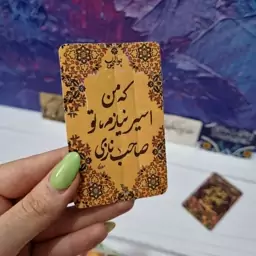 که من
اسیر نیازم، تو
صاحب نازی